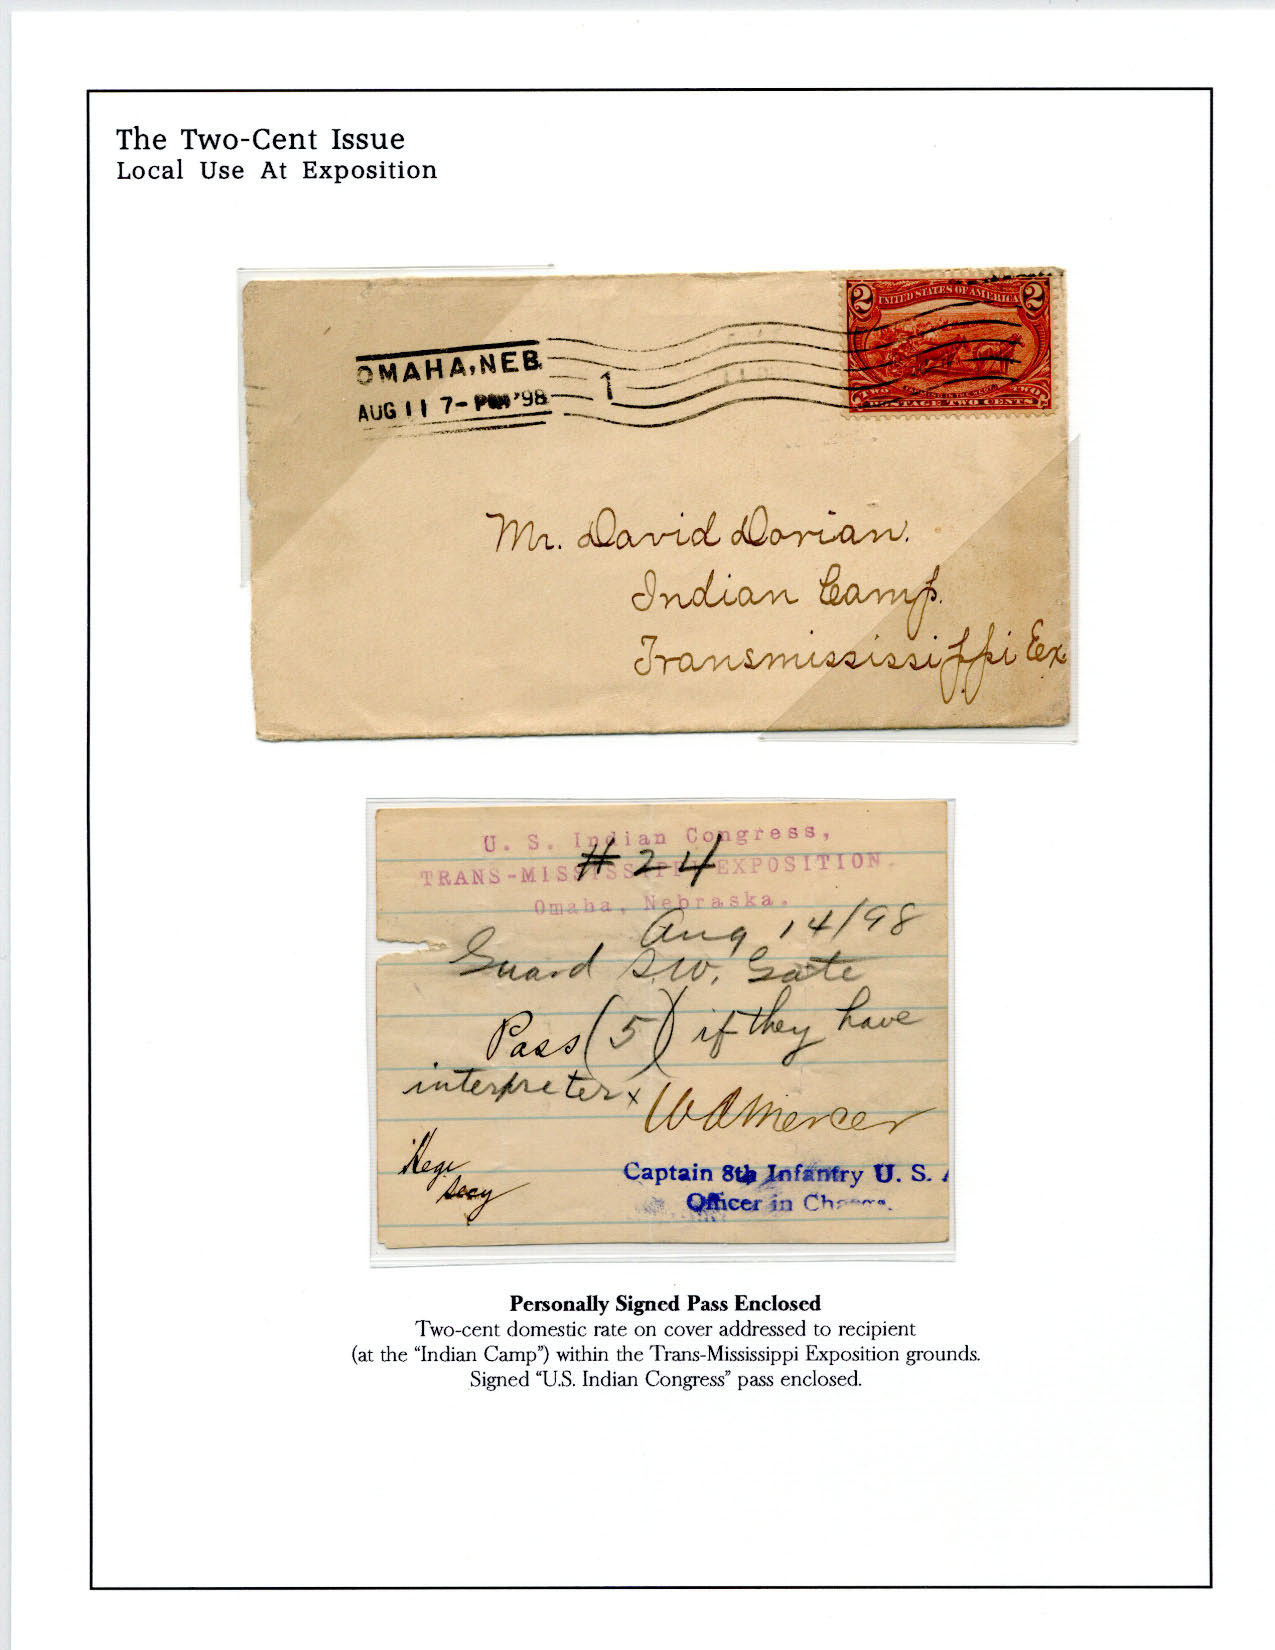 The Two-Cent Issue
Local Use At Exposition
2 UNITED STATES OF AMERICA 2
TWO TWO
POSTAGE TWO CENTS
OMAHA, NEB.
AUG 11 7- PM '98
1
Mr. David Dorian.
Indian Camp.
Transmississippi Ex.
U. S. Indian Congress,
#24
TRANS-MISSISSIPPI EXPOSITION.
Omaha, Nebraska.
Aug 14/98
Guard S.W. Gate
Pass (5) if they have
interpreter x
W A Mercer
secy
Captain 8th Infantry U. S. A
Officer in Charge.
Personally Signed Pass Enclosed
Two-cent domestic rate on cover addressed to recipient
(at the “Indian Camp”) within the Trans-Mississippi Exposition grounds.
Signed “U.S. Indian Congress” pass enclosed.